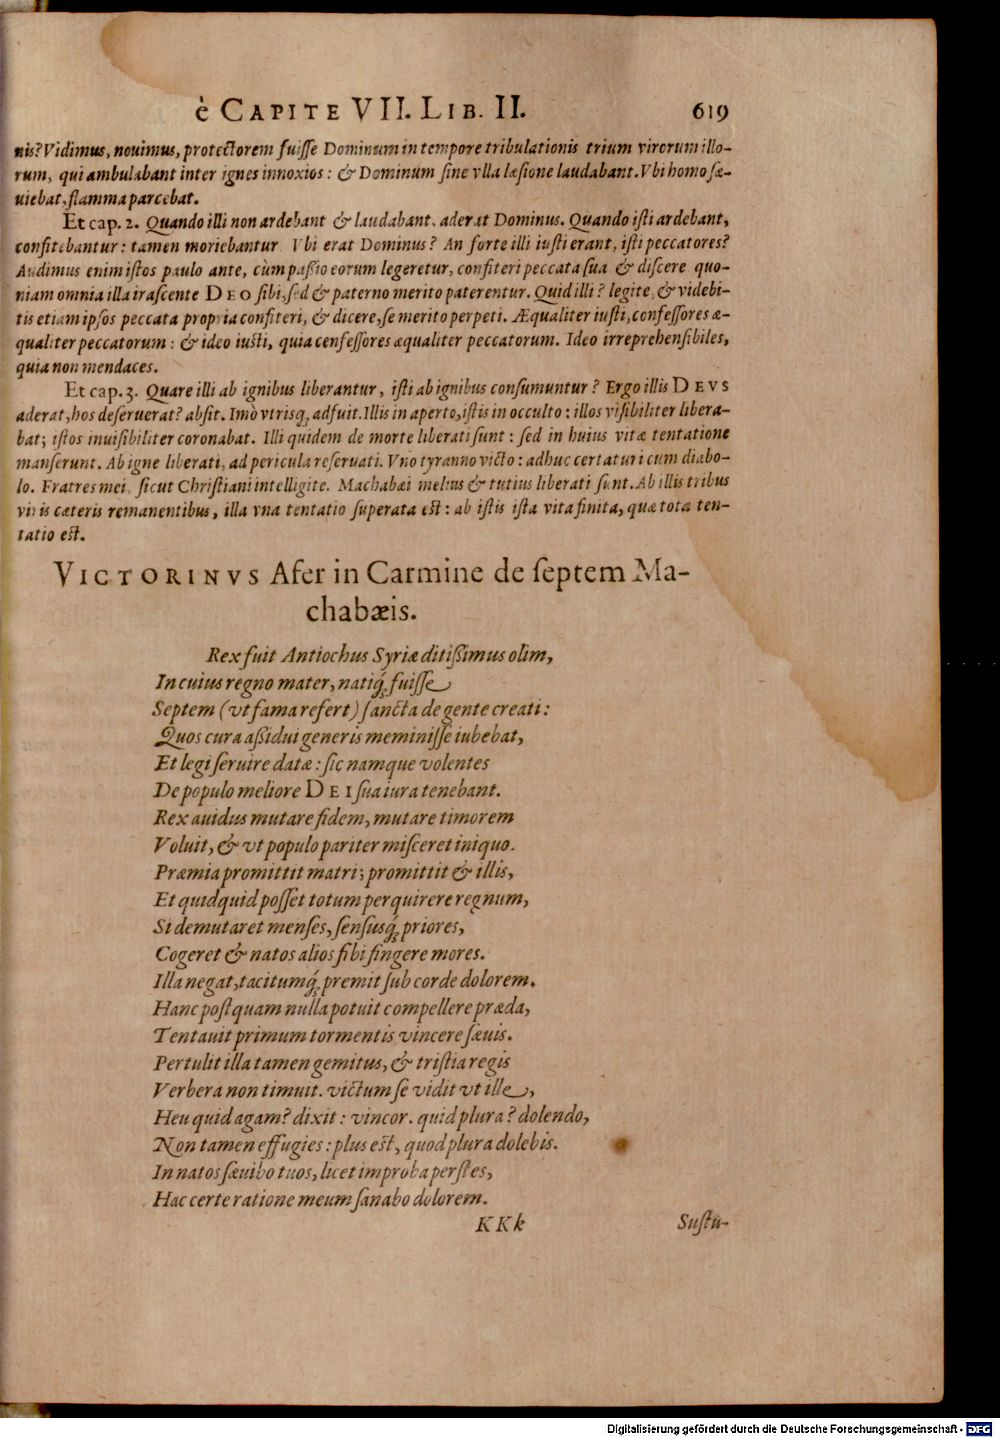 è CAPITE VII. LIB. II. 619
nis? Vidimus, nouimus, protectorem fuiſſe Dominum in tempore tribulationis trium virorum illo-
rum, qui ambulabant inter ignes innoxios: & Dominum ſine vlla læſione laudabant. Vbi homo ſæ-
uiebat, flamma parcebat.
Et cap. 2. Quando illi non ardebant & laudabant, aderat Dominus. Quando iſti ardebant,
confitebantur: tamen moriebantur. Vbi erat Dominus? An forte illi iuſti erant, iſti peccatores?
Audimus enim iſtos paulo ante, cùm paßio eorum legeretur, confiteri peccata ſua & diſcere quo-
niam omnia illa iraſcente DEO ſibi, ſed & paterno merito paterentur. Quid illi? legite, & videbi-
tis etiam ipſos peccata propria confiteri, & dicere, ſe merito perpeti. Æqualiter iuſti, confeſſores æ-
qualiter peccatorum: & ideo iuſti, quia cenfeſſores æqualiter peccatorum. Ideo irreprehenſibiles,
quia non mendaces.
Et cap. 3. Quare illi ab ignibus liberantur, iſti ab ignibus conſumuntur? Ergo illis DEVS
aderat, hos deſeruerat? abſit. Imò vtrisq́; adfuit. Illis in aperto, iſtis in occulto: illos viſibiliter libera-
bat; iſtos inuiſibiliter coronabat. Illi quidem de morte liberati ſunt: ſed in huius vitæ tentatione
manſerunt. Ab igne liberati, ad pericula reſeruati. Vno tyranno victo: adhuc certaturi cum diabo-
lo. Fratres mei, ſicut Chriſtiani intelligite. Machabæi melius & tutius liberati ſunt. Ab illis tribus
viris cæteris remanentibus, illa vna tentatio ſuperata eſt: ab iſtis iſta vita finita, quæ tota ten-
tatio eſt.
VICTORINVS Afer in Carmine de ſeptem Ma-
chabæis.
Rex fuit Antiochus Syriæ ditißimus olim,
In cuius regno mater, natiq́; fuiſſe
Septem (vt fama refert) ſancta de gente creati:
Quos cura aßidui generis meminiſſe iubebat,
Et legi ſeruire datæ: ſic namque volentes
De populo meliore DEI ſua iura tenebant.
Rex auidus mutare fidem, mutare timorem
Voluit, & vt populo pariter miſceret iniquo.
Præmia promittit matri; promittit & illis,
Et quidquid poſſet totum perquirere regnum,
Si demutaret menſes, ſenſusq́; priores,
Cogeret & natos alios ſibi fingere mores.
Illa negat, tacitumq́; premit ſub corde dolorem.
Hanc poſtquam nulla potuit compellere præda,
Tentauit primum tormentis vincere ſæuis.
Pertulit illa tamen gemitus, & triſtia regis
Verbera non timuit. victum ſe vidit vt ille,
Heu quid agam? dixit: vincor. quid plura? dolendo,
Non tamen effugies: plus eſt, quod plura dolebis.
In natos ſæuibo tuos, licet improba perſtes,
Hac certe ratione meum ſanabo dolorem.
KKk Suſtu-
Digitalisierung gefördert durch die Deutsche Forschungsgemeinschaft - DFG